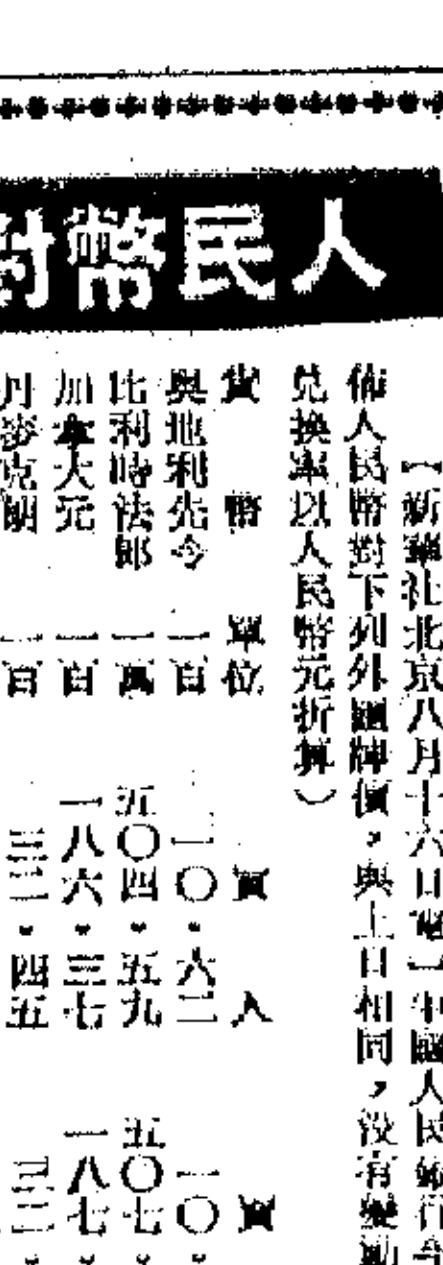 人民幣對
【新華社北京八月十六日電】中國人民銀行今
佈人民幣對下列外國牌價，與上日相同，沒有變動
兌換率以人民幣元折算）
貨幣 單位 買入 賣
奧地利先令 一百 一〇．六二 一〇．
比利時法郎 一萬 五〇四．五九 五〇七．
加拿大元 一百 一八六．三七 一八七．
丹麥克朗 一百 三二．四五 三二．